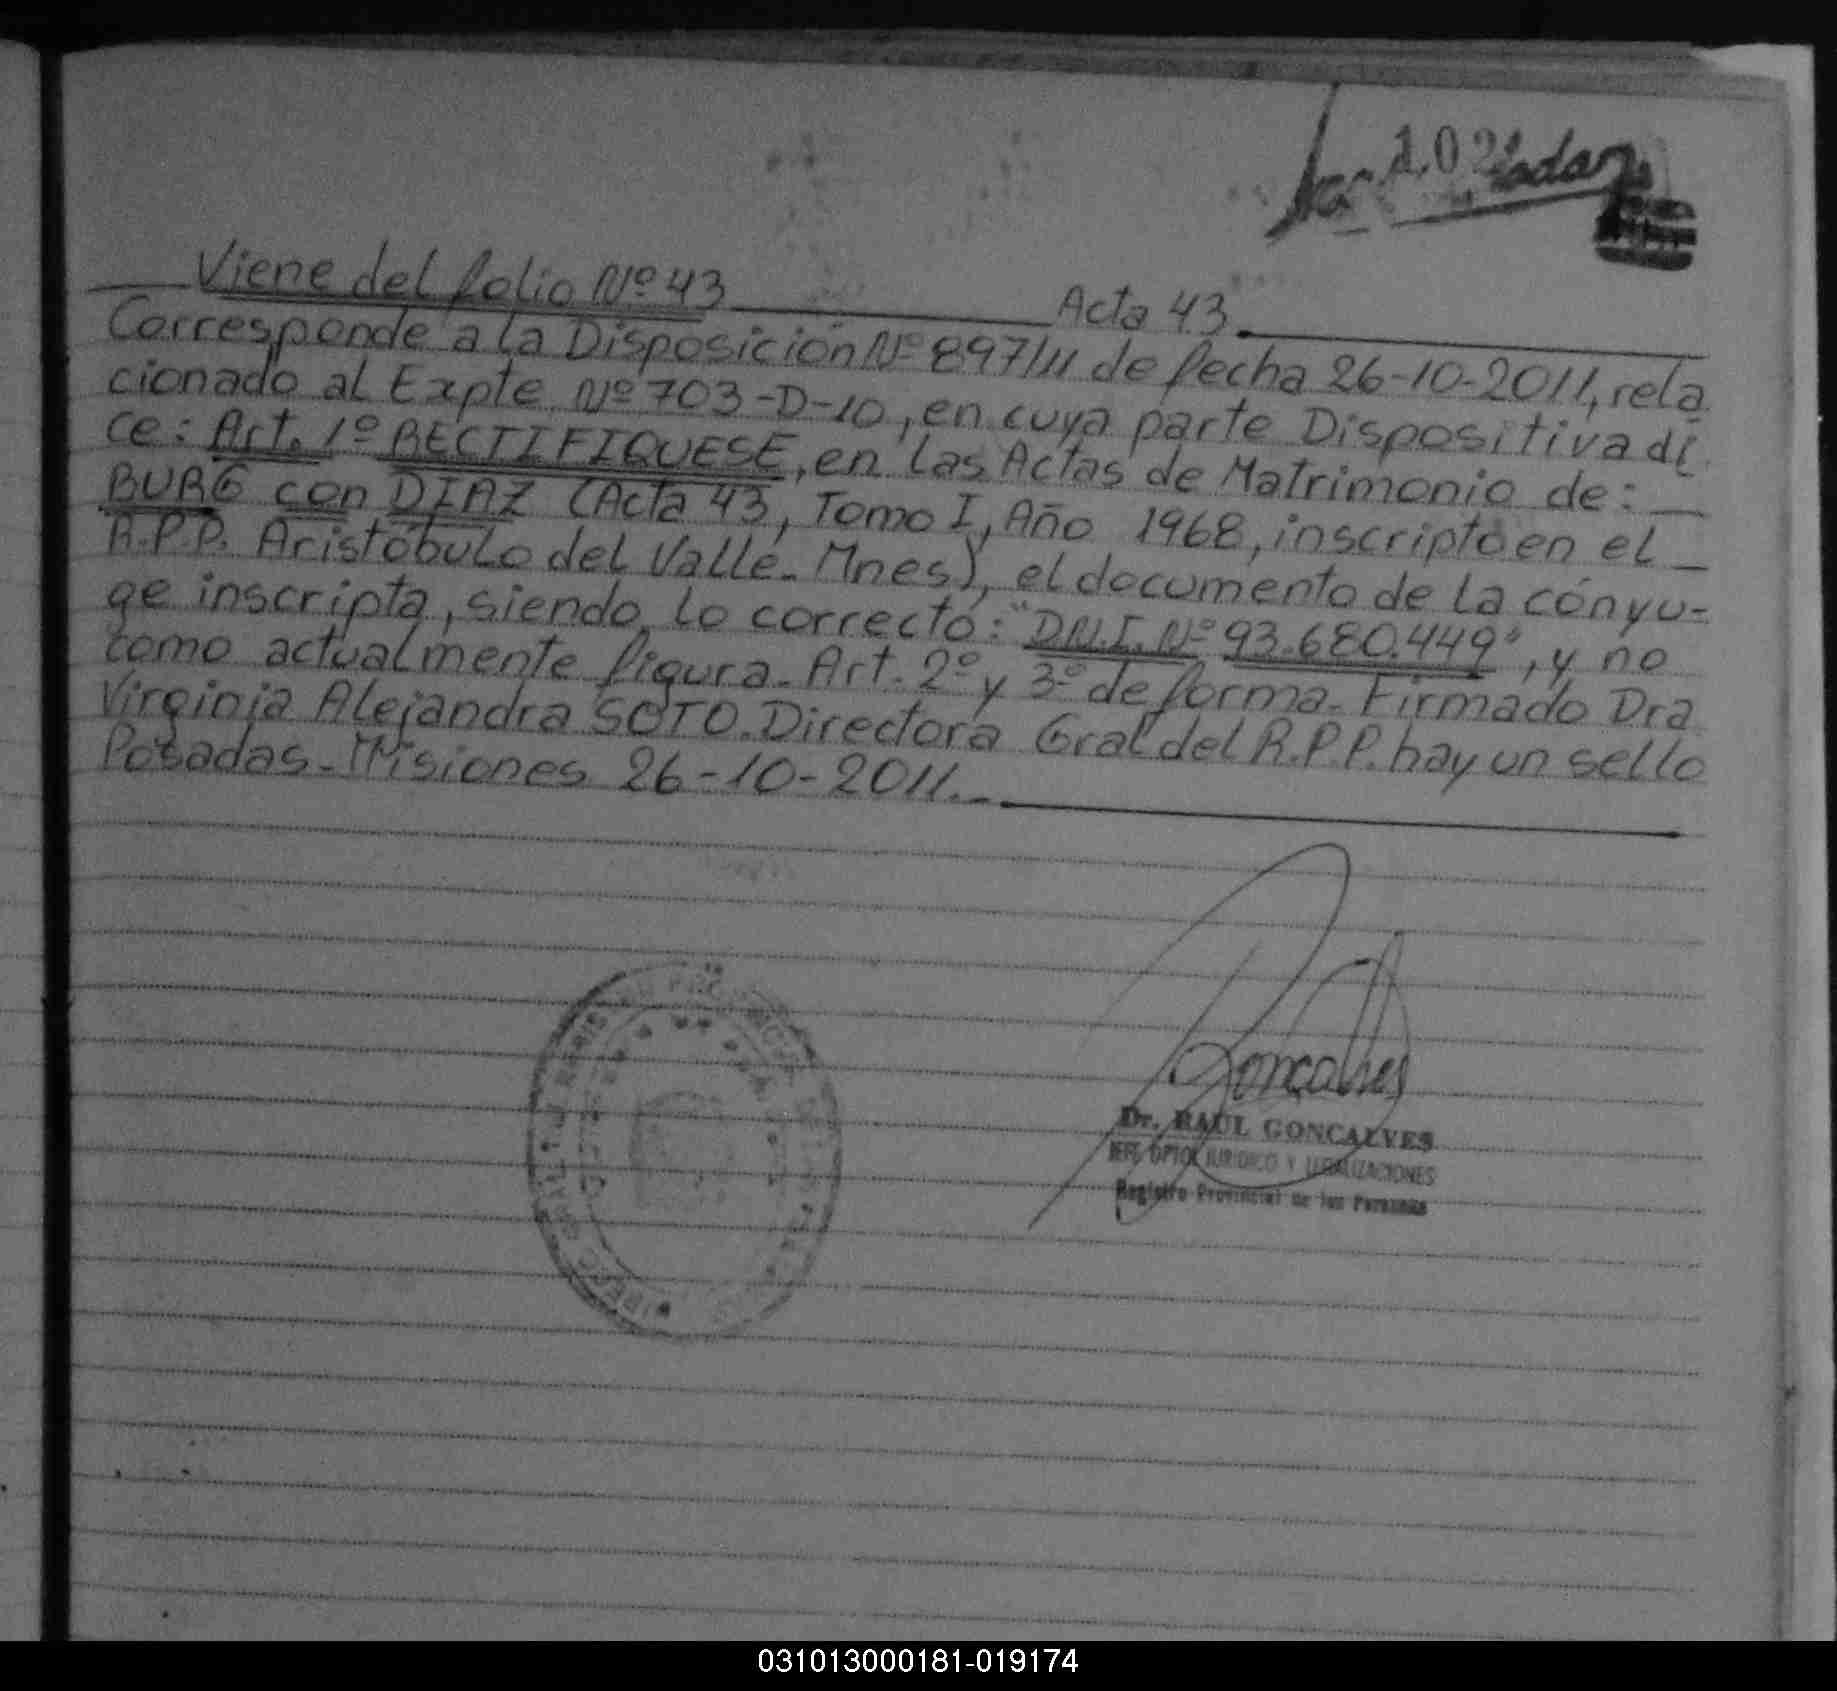 102
Viene del folio Nº 43 Acta 43
Corresponde a la Disposición Nº 897/11 de fecha 26-10-2011, rela
cionado al Expte Nº 703-D-10, en cuya parte Dispositiva di
ce: Art. 1º RECTIFIQUESE, en las Actas de Matrimonio de:
BURG con DIAZ (Acta 43, Tomo I, Año 1968, inscripto en el
R.P.P. Aristóbulo del Valle - Mnes), el documento de la cónyu-
ge inscripta, siendo lo correcto: "D.N.I. Nº 93.680.449", y no
como actualmente figura - Art. 2º y 3º de forma - Firmado Dra
Virginia Alejandra SOTO. Directora Gral del R.P.P. hay un sello
Posadas - Misiones 26-10-2011.-
Goncalves
Dr. RAUL GONCALVES
JEFE DPTO JURIDICO Y LEGALIZACIONES
Registro Provincial de las Personas
031013000181-019174